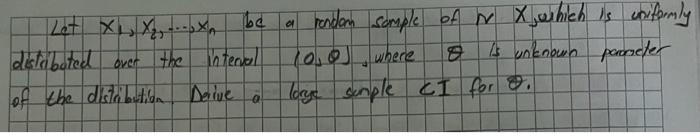 Let X₁, X₂, ..., Xn be a random sample of rv X, which is uniformly
distributed over the interval (0, θ), where θ is unknown parameter
of the distribution. Derive a large sample CI for θ.